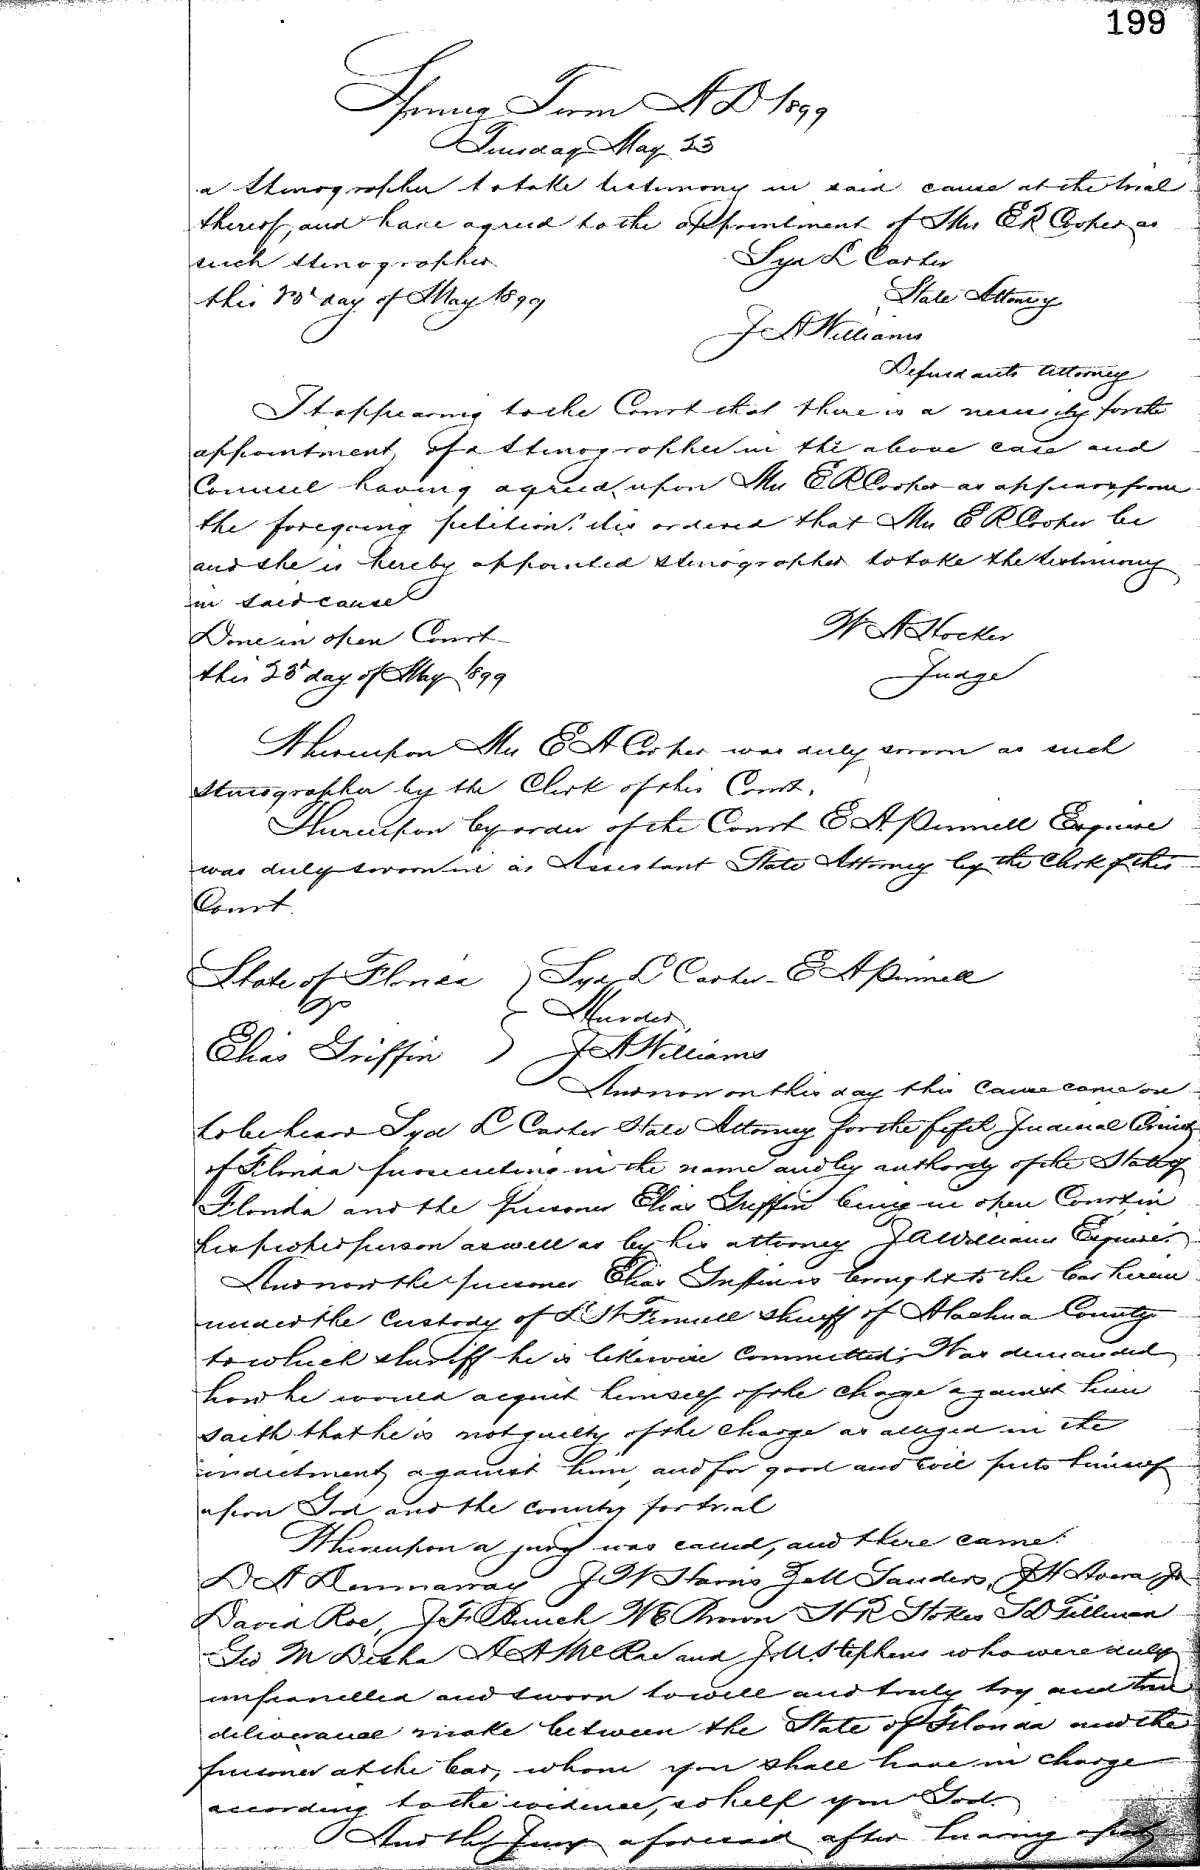 199
Spring Term A D 1899
Tuesday May 23
a stenographer to take testimony in said cause at the trial
thereof, and have agreed to the appointment of Mrs E R Cooper as
such stenographer. Syd L Carter
this 23d day of May 1899 State Attorney
J A Williams
Defendants Attorney
It appearing to the Court that there is a necessity for the
appointment of a stenographer in the above case and
Counsel having agreed upon Mrs E R Cooper as appears from
the foregoing petition. it is ordered that Mrs E R Cooper be
and she is hereby appointed stenographer to take the testimony
in said cause
Done in open Court W A Hocker
this 23d day of May 1899 Judge
Whereupon Mrs E A Cooper was duly sworn as such
stenographer by the Clerk of this Court.
Thereupon by order of the Court E A Pinnell Esquire
was duly sworn in as Assistant State Attorney by the Clerk of this
Court.
State of Florida } Syd L Carter - E A Pinnell
vs } Murder
Elias Griffin } J A Williams
And now on this day this cause came on
to be heard Syd L Carter State Attorney for the fifth Judicial Circuit
of Florida prosecuting in the name and by authority of the State of
Florida and the prisoner Elias Griffin being in open Court in
his proper person as well as by his attorney J A Williams Esquire.
And now the prisoner Elias Griffin is brought to the bar herein
under the custody of L W Fennell sheriff of Alachua County
to which sheriff he is likewise committed; Was demanded
how he would acquit himself of the charge against him
saith that he is not guilty of the charge as alleged in the
indictment against him, and for good and evil puts himself
upon God and the county for trial
Whereupon a jury was called, and there came:
D A Hemmaway J W Harris Zell Sanders, J H Avera, Jr
David Roe, J F Burch W E Brown H R Stokes S D Tillman
Geo M Desha A A McRae and J. M. Stephens who were duly
impanelled and sworn to well and truly try and true
deliverance make between the State of Florida and the
prisoner at the bar, whom you shall have in charge
according to the evidence, so help you God.
And the Jury aforesaid after hearing